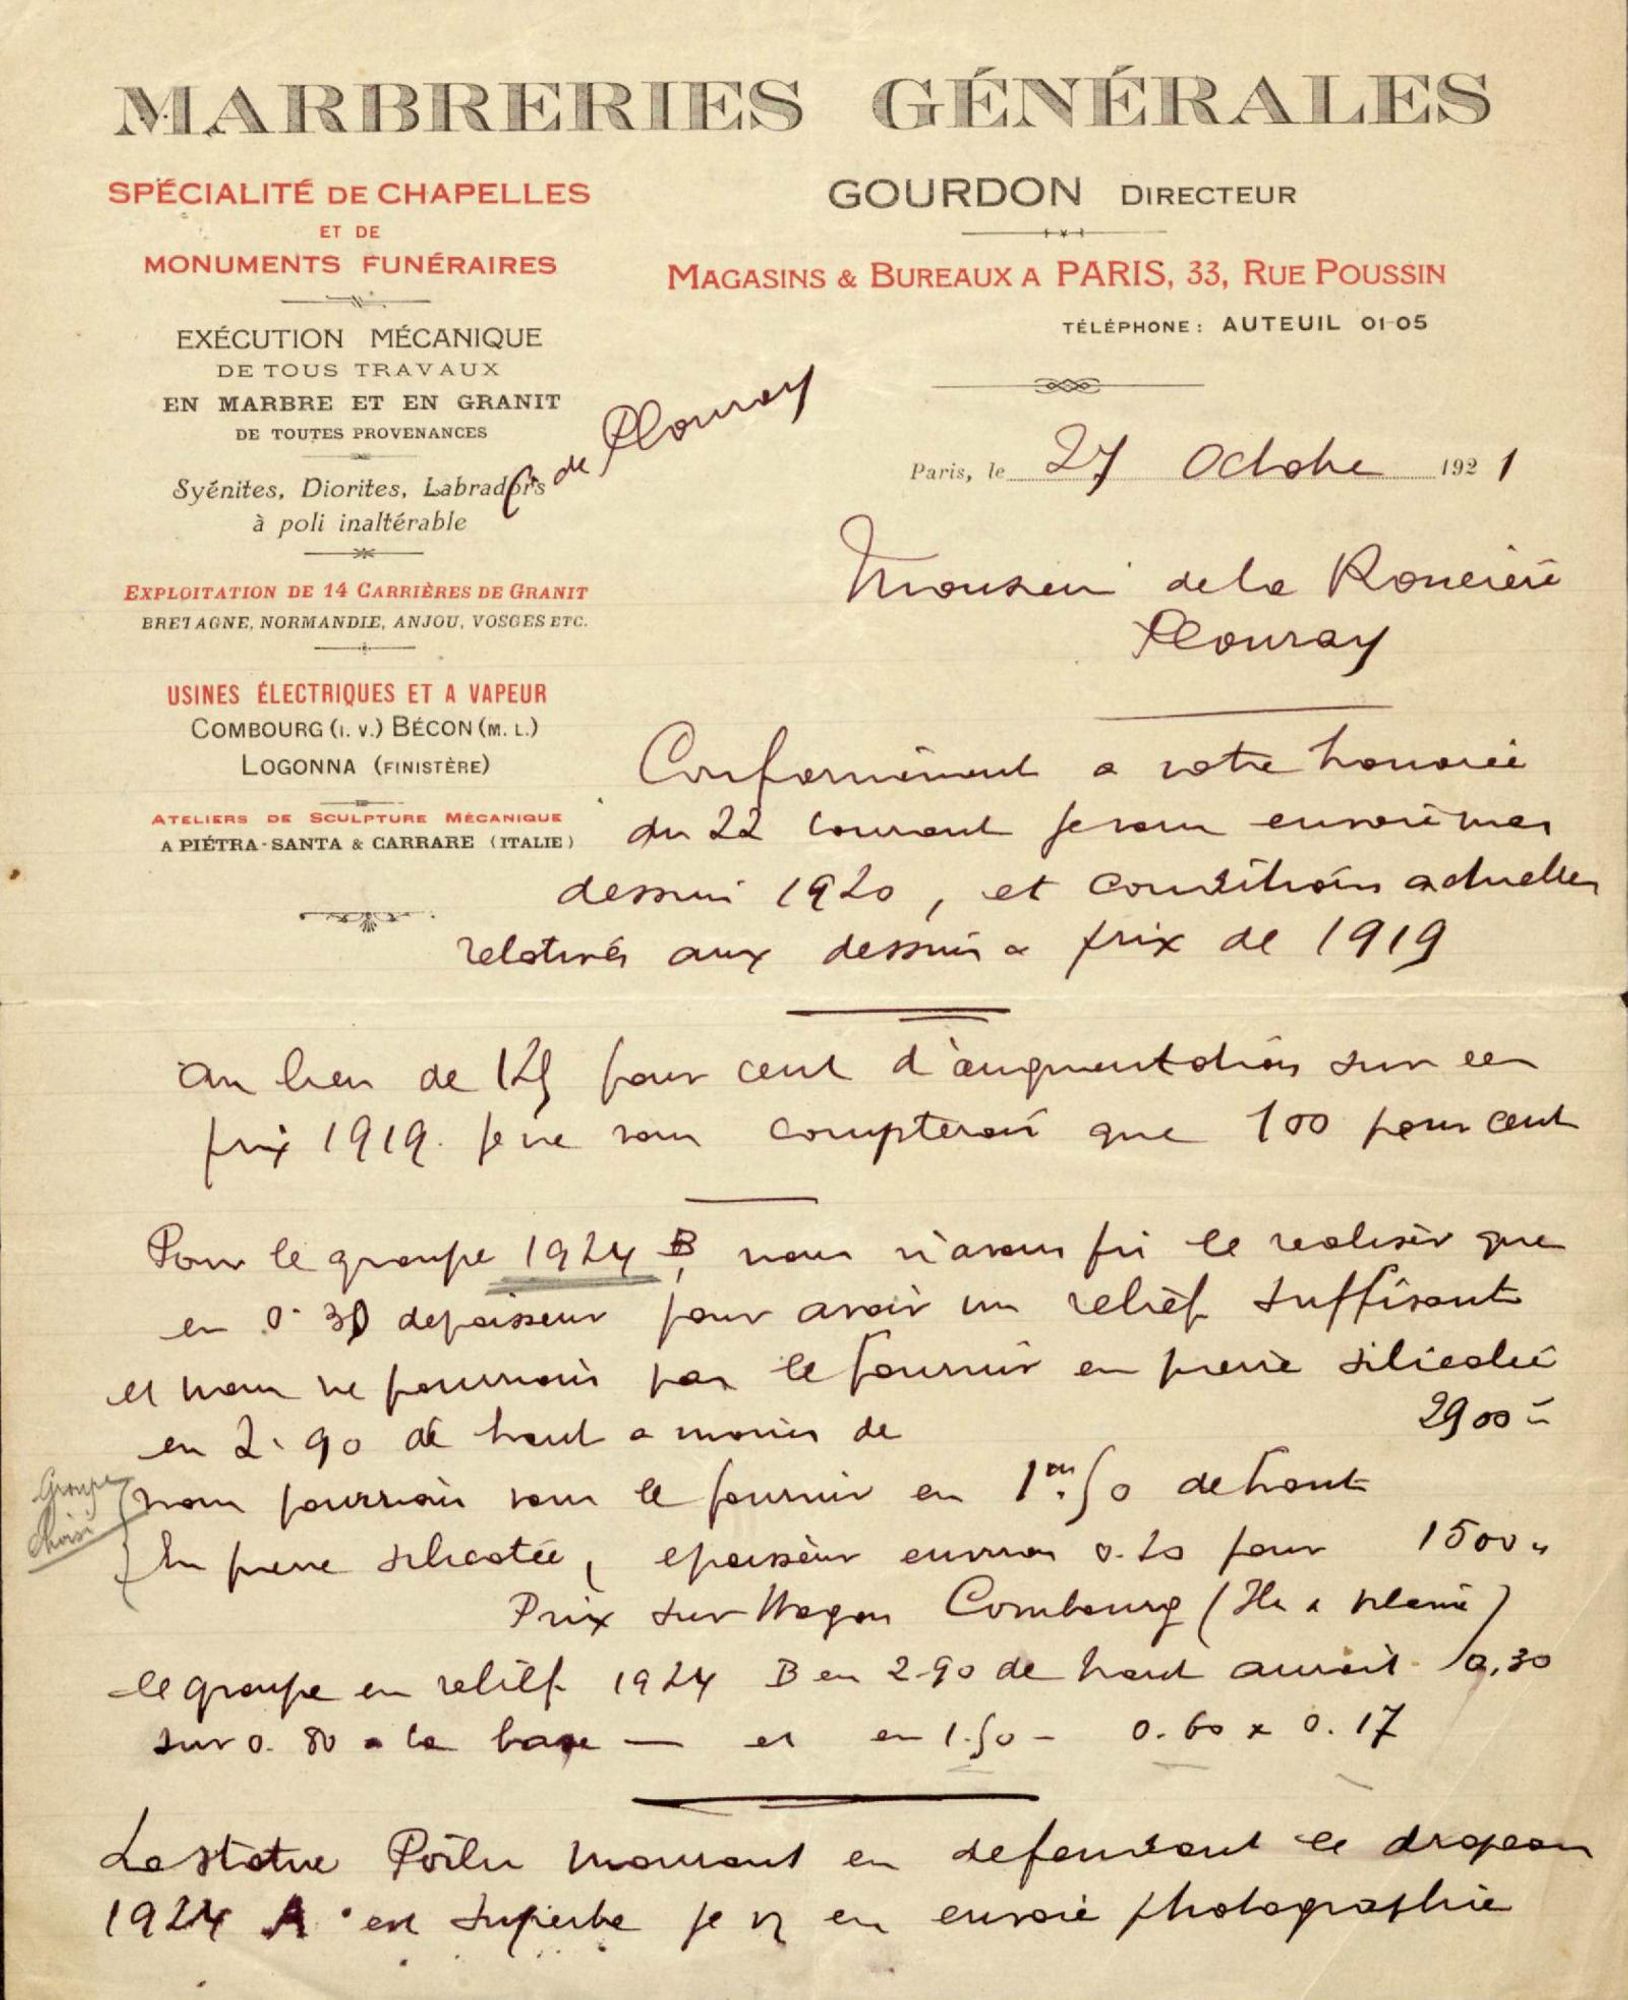 MARBRERIES GÉNÉRALES
SPÉCIALITÉ DE CHAPELLES
ET DE
MONUMENTS FUNÉRAIRES
EXÉCUTION MÉCANIQUE
DE TOUS TRAVAUX
EN MARBRE ET EN GRANIT
DE TOUTES PROVENANCES
Syénites, Diorites, Labradors
à poli inaltérable
EXPLOITATION DE 14 CARRIÈRES DE GRANIT
BRETAGNE, NORMANDIE, ANJOU, VOSGES ETC.
USINES ÉLECTRIQUES ET A VAPEUR
COMBOURG (I. V.) BÉCON (M. L.)
LOGONNA (FINISTÈRE)
ATELIERS DE SCULPTURE MÉCANIQUE
A PIÉTRA-SANTA & CARRARE (ITALIE)
GOURDON DIRECTEUR
MAGASINS & BUREAUX A PARIS, 33, RUE POUSSIN
TÉLÉPHONE : AUTEUIL 01-05
de Plouray
Paris, le 27 Octobre 1921
Monsieur de la Roncière
Plouray
Conformément a votre honorée
du 22 courant je vous envoie mes
dessins 1920, et conditions actuelles
relatives aux dessins a prix de 1919
au lieu de 125 pour cent d'augmentation sur ces
prix 1919. je ne vous compterai que 100 pour cent
Pour le groupe 1924 B, nous n'avons pu le realiser que
en 0.30 depaisseur pour avoir un relief suffisant
et nous ne pourrions pas le fournir en pierre silicatée
en 2.90 de haut a moins de 2900
Groupe choisi
nous pourrions vous le fournir en 1m.50 de haut
En pierre silicatée, epaisseur environ 0.20 pour 1500
Prix sur Wagon Combourg (Ille & Vilaine)
le groupe en relief 1924 B en 2.90 de haut aurait 0,30
sur 0.80 a la base — et en 1.50 - 0.60 x 0.17
La statue Poilu mourant en defendant le drapeau
1924 A est superbe je vs en envoie photographie